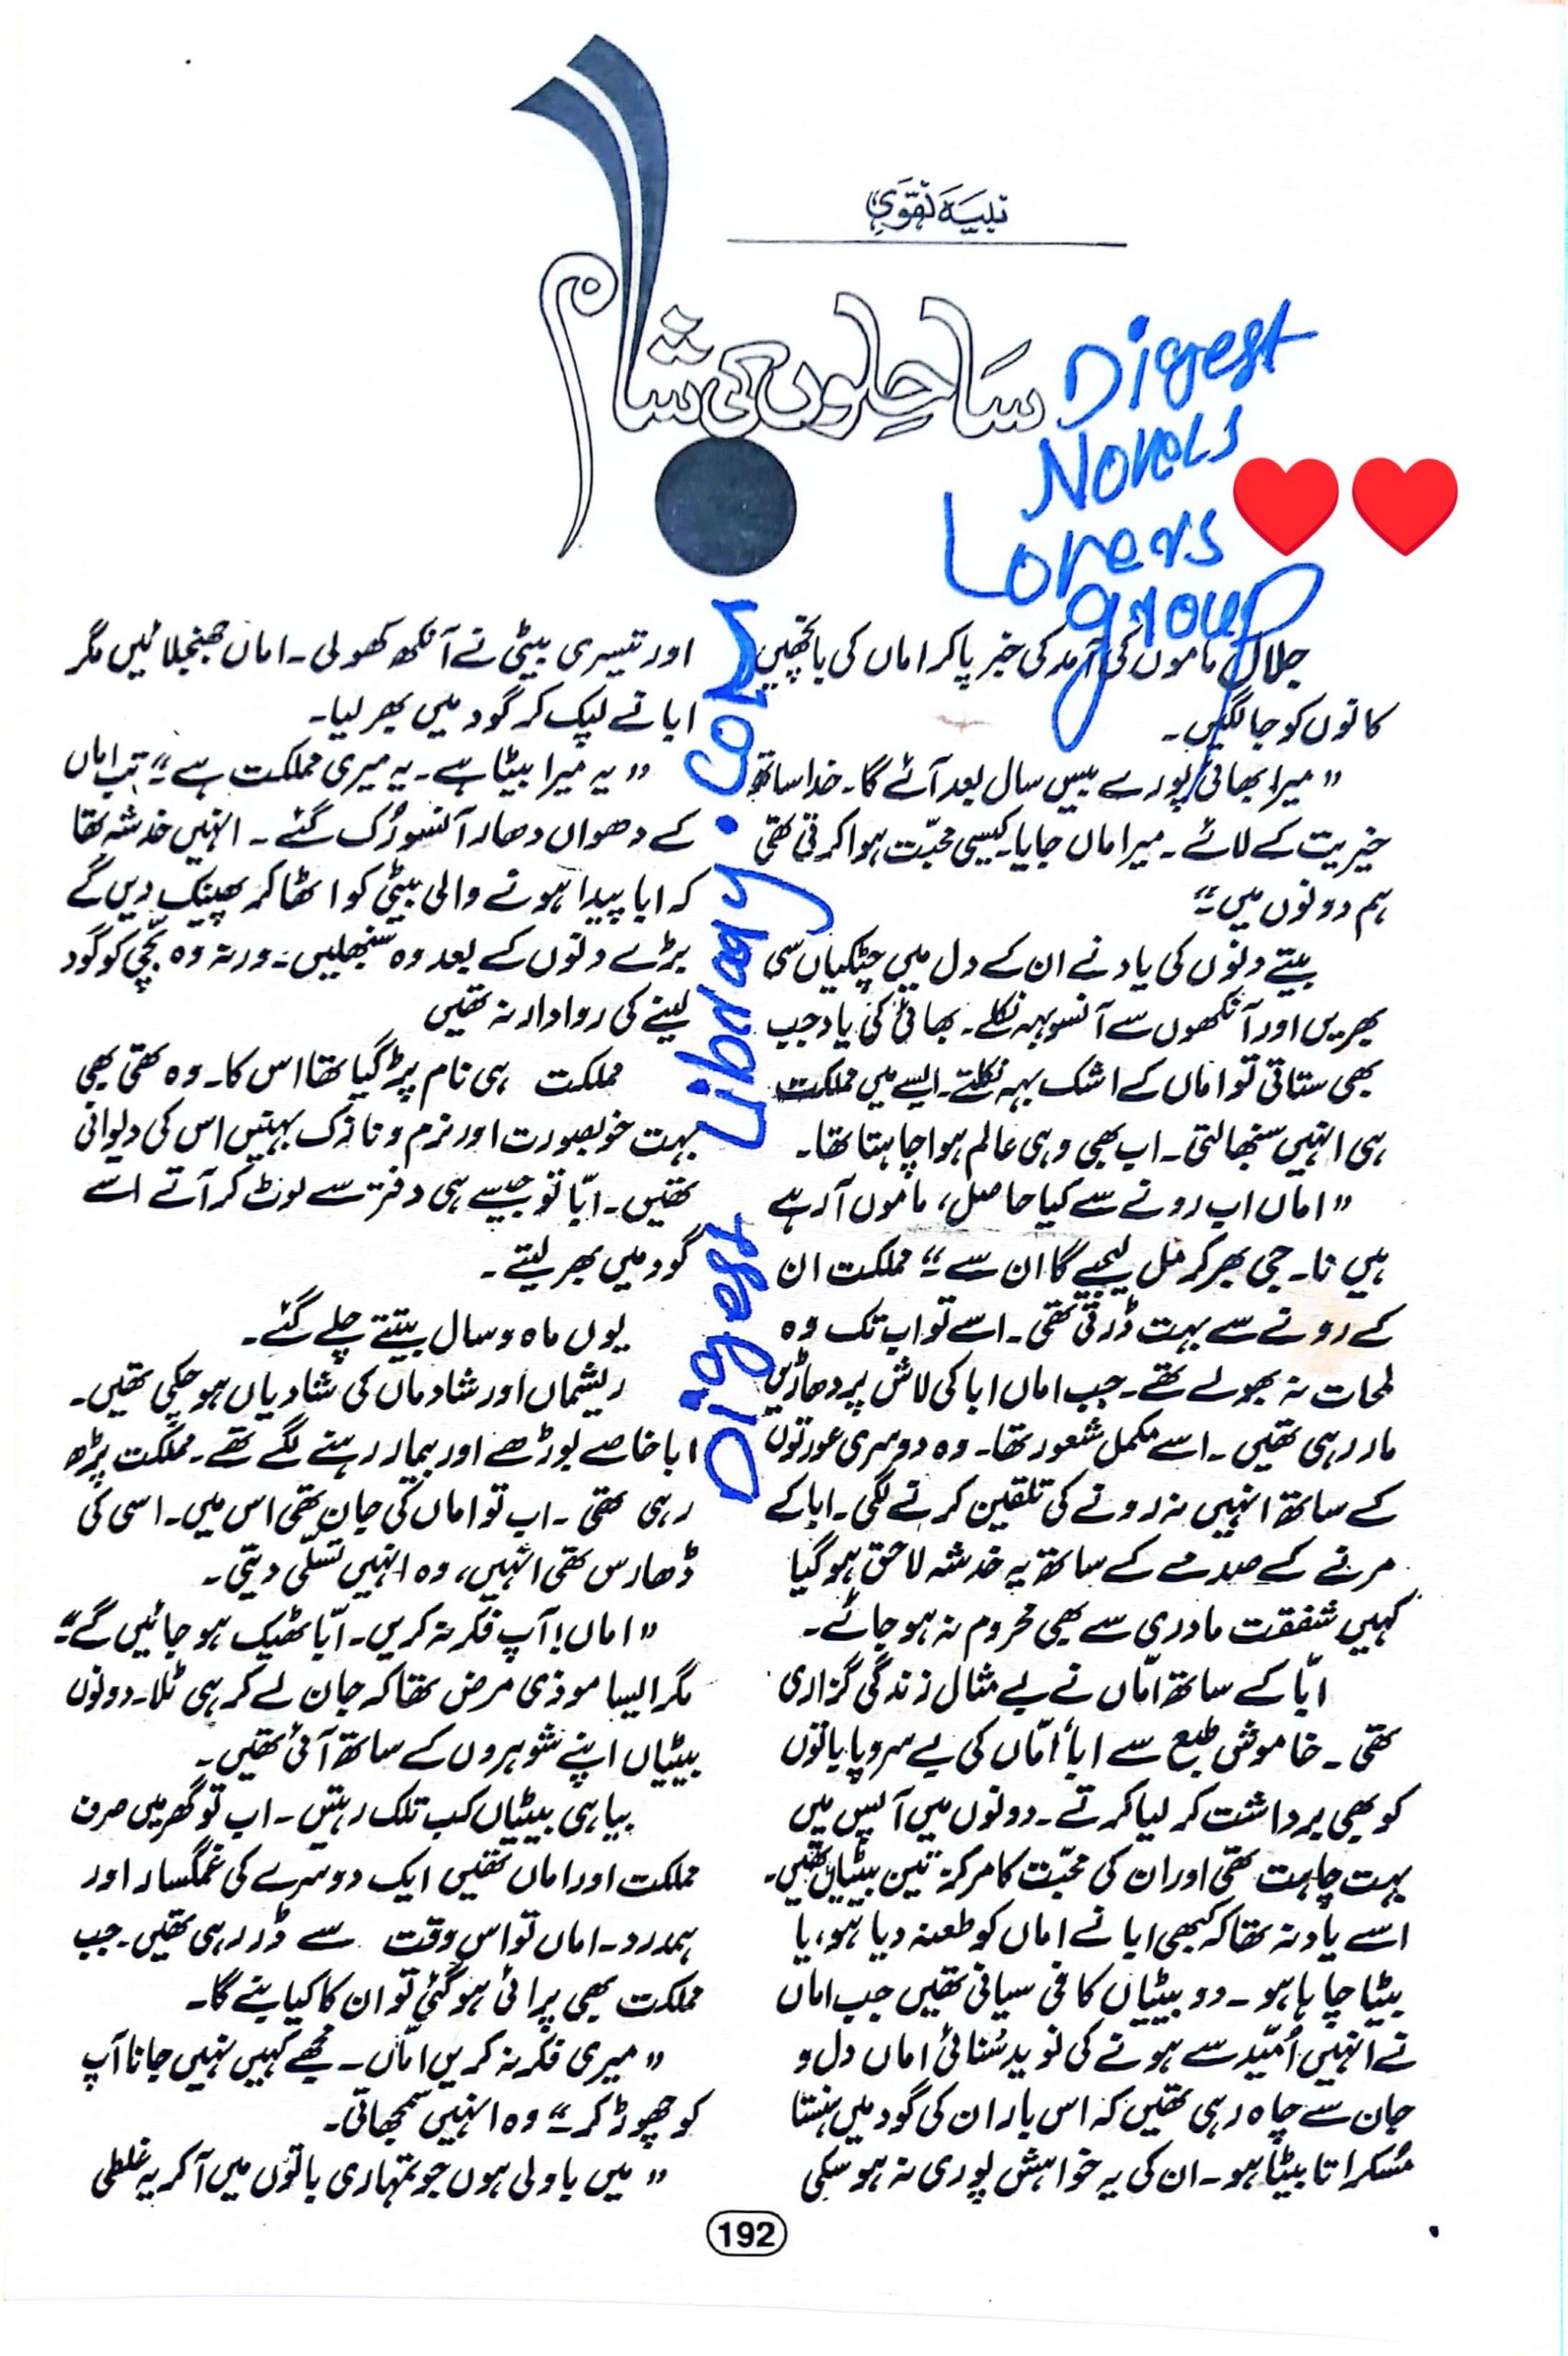 نبیہ نقوی
ساحلوں کی شام
Digest
Novels
Lovers
group
جلال ماموں کی آمد کی خبر پا کر اماں کی باچھیں
کانوں کو جا لگیں۔
”میرا بھائی پورے بیس سال بعد آئے گا۔ خدا ساتھ
خیریت کے لائے۔ میرا ماں جایا۔ کیسی محبّت ہوا کرتی تھی
ہم دونوں میں۔“
بیتے دنوں کی یاد نے ان کے دل میں چٹکیاں سی
بھریں اور آنکھوں سے آنسو بہہ نکلے۔ بھائی کی یاد جب
بھی ستاتی تو اماں کے اشک بہہ نکلتے۔ ایسے میں مملکت
ہی انہیں سنبھالتی۔ اب بھی وہی عالم ہوا چاہتا تھا۔
”اماں اب رونے سے کیا حاصل، ماموں آ رہے
ہیں نا۔ جی بھر کر مل لیجیے گا ان سے۔“ مملکت ان
کے رونے سے بہت ڈرتی تھی۔ اسے تو اب تک وہ
لمحات نہ بھولے تھے۔ جب اماں ابا کی لاش پر دھاڑیں
مار رہی تھیں۔ اسے مکمل شعور تھا۔ وہ دوسری عورتوں
کے ساتھ انہیں نہ رونے کی تلقین کرنے لگی۔ ابا کے
مرنے کے صدمے کے ساتھ یہ خدشہ لاحق ہو گیا
کہیں شفقت مادری سے بھی محروم نہ ہو جائے۔
ابّا کے ساتھ امّاں نے بے مثال زندگی گزاری
تھی۔ خاموش طبع سے ابا امّاں کی بے سروپا باتوں
کو بھی برداشت کر لیا کرتے۔ دونوں میں آپس میں
بہت چاہت تھی اور ان کی محبّت کا مرکز تین بیٹیاں تھیں۔
اسے یاد نہ تھا کہ کبھی ابا نے اماں کو طعنہ دیا ہو، یا
بیٹا چاہا ہو۔ دو بیٹیاں کافی سیانی تھیں جب اماں
نے انہیں اُمّید سے ہونے کی نوید سُنائی اماں دل و
جان سے چاہ رہی تھیں کہ اس بار ان کی گود میں ہنستا
مُسکراتا بیٹا ہو۔ ان کی یہ خواہش پوری نہ ہو سکی
اور تیسری بیٹی نے آنکھ کھولی۔ اماں جھنجلائیں مگر
ابا نے لپک کر گود میں بھر لیا۔
”یہ میرا بیٹا ہے۔ یہ میری مملکت ہے۔“ تب اماں
کے دھواں دھار آنسو رُک گئے۔ انہیں خدشہ تھا
کہ ابا پیدا ہونے والی بیٹی کو اٹھا کر پھینک دیں گے
بڑے دنوں کے بعد وہ سنبھلیں۔ ورنہ وہ بچّی کو گود
لینے کی روادار نہ تھیں
مملکت ہی نام پڑ گیا تھا اس کا۔ وہ تھی بھی
بہت خوبصورت اور نرم و نازک بہنیں اس کی دیوانی
تھیں۔ ابّا تو جیسے ہی دفتر سے لوٹ کر آتے اسے
گود میں بھر لیتے۔
یوں ماہ و سال بیتتے چلے گئے۔
ریشماں اور شادماں کی شادیاں ہو چکی تھیں۔
ابا خاصے بوڑھے اور بیمار رہنے لگے تھے۔ مملکت پڑھ
رہی تھی۔ اب تو اماں کی جان تھی اس میں۔ اسی کی
ڈھارس تھی انہیں، وہ انہیں تسلّی دیتی۔
”اماں! آپ فکر نہ کریں۔ ابّا ٹھیک ہو جائیں گے۔“
مگر ایسا موذی مرض تھا کہ جان لے کر ہی ٹلا۔ دونوں
بیٹیاں اپنے شوہروں کے ساتھ آئی تھیں۔
بیاہی بیٹیاں کب تلک رہتیں۔ اب تو گھر میں صرف
مملکت اور اماں تھیں ایک دوسرے کی غمگسار اور
ہمدرد۔ اماں تو اس وقت سے ڈر رہی تھیں۔ جب
مملکت بھی پرائی ہو گئی تو ان کا کیا بنے گا۔
”میری فکر نہ کریں امّاں۔ مجھے کہیں نہیں جانا آپ
کو چھوڑ کر۔“ وہ انہیں سمجھاتی۔
”میں باولی ہوں جو تمہاری باتوں میں آ کر یہ غلطی
Digest Library.com
192